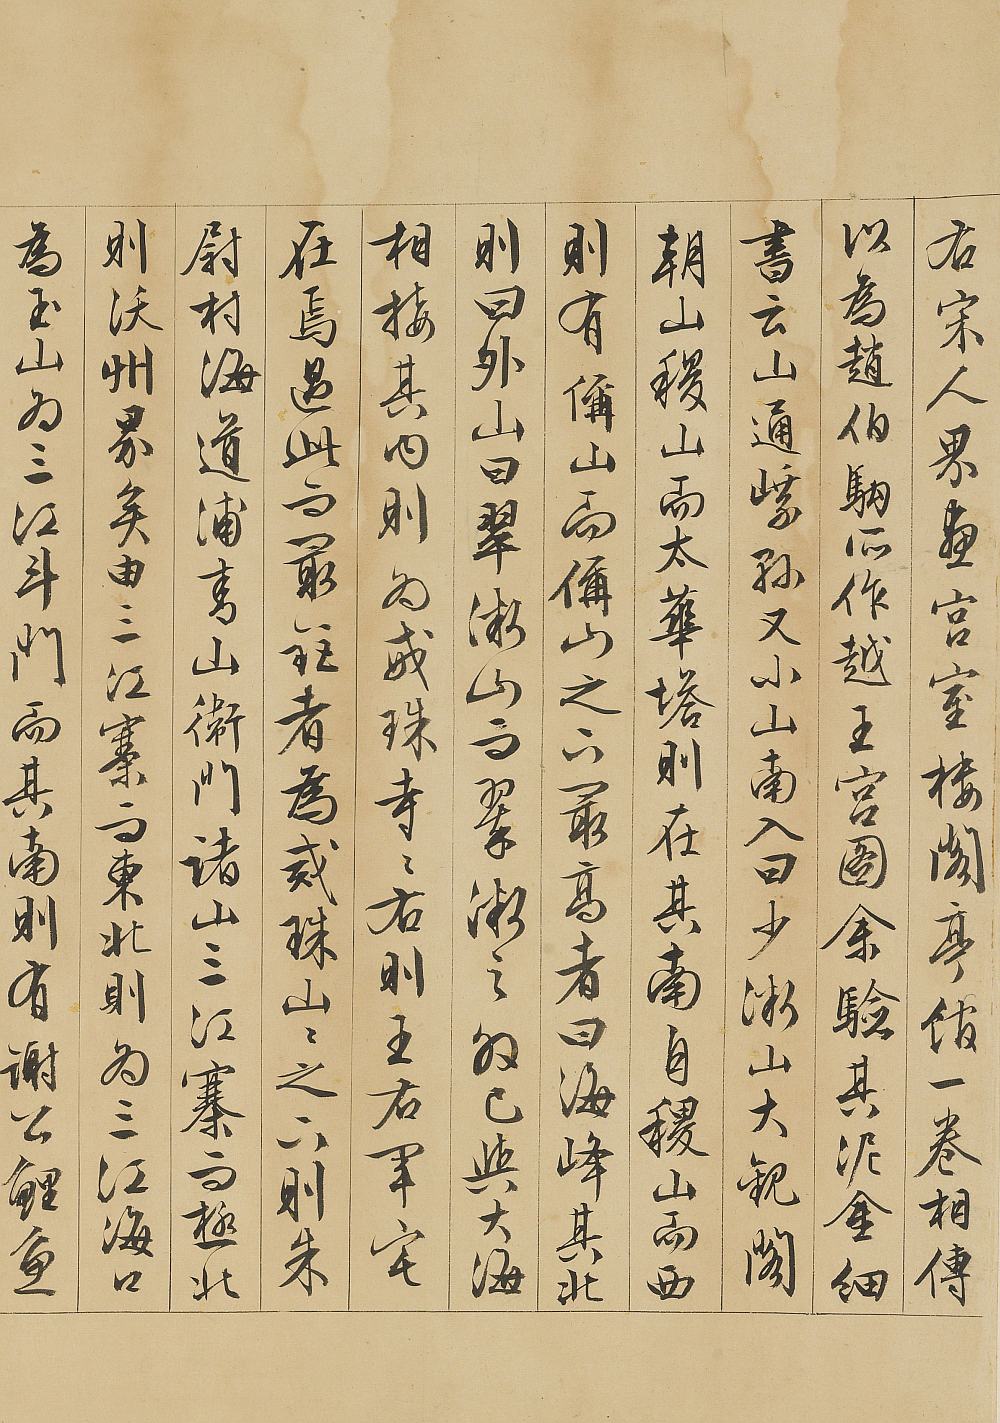 右宋人界畫宮室樓閣亭館一卷相傳
以為趙伯駒所作越王宮圖余驗其泥金細
書云山通嶀孫又小山南入曰少漵山大觀閣
朝山稷山而太華塔則在其南自稷山而西
則有偁山而偁山之下最高者曰海峰其北
則曰外山曰翠漵山而翠漵之外已與大海
相接其內則為戒珠寺々右則王右軍宅
在焉過此而最近者為戒珠山々之下則朱
尉村海道浦青山衛門諸山三江寨而極北
則沃州界矣由三江寨而東北則為三江海口
為玉山為三江斗門而其南則有謝公鯉魚